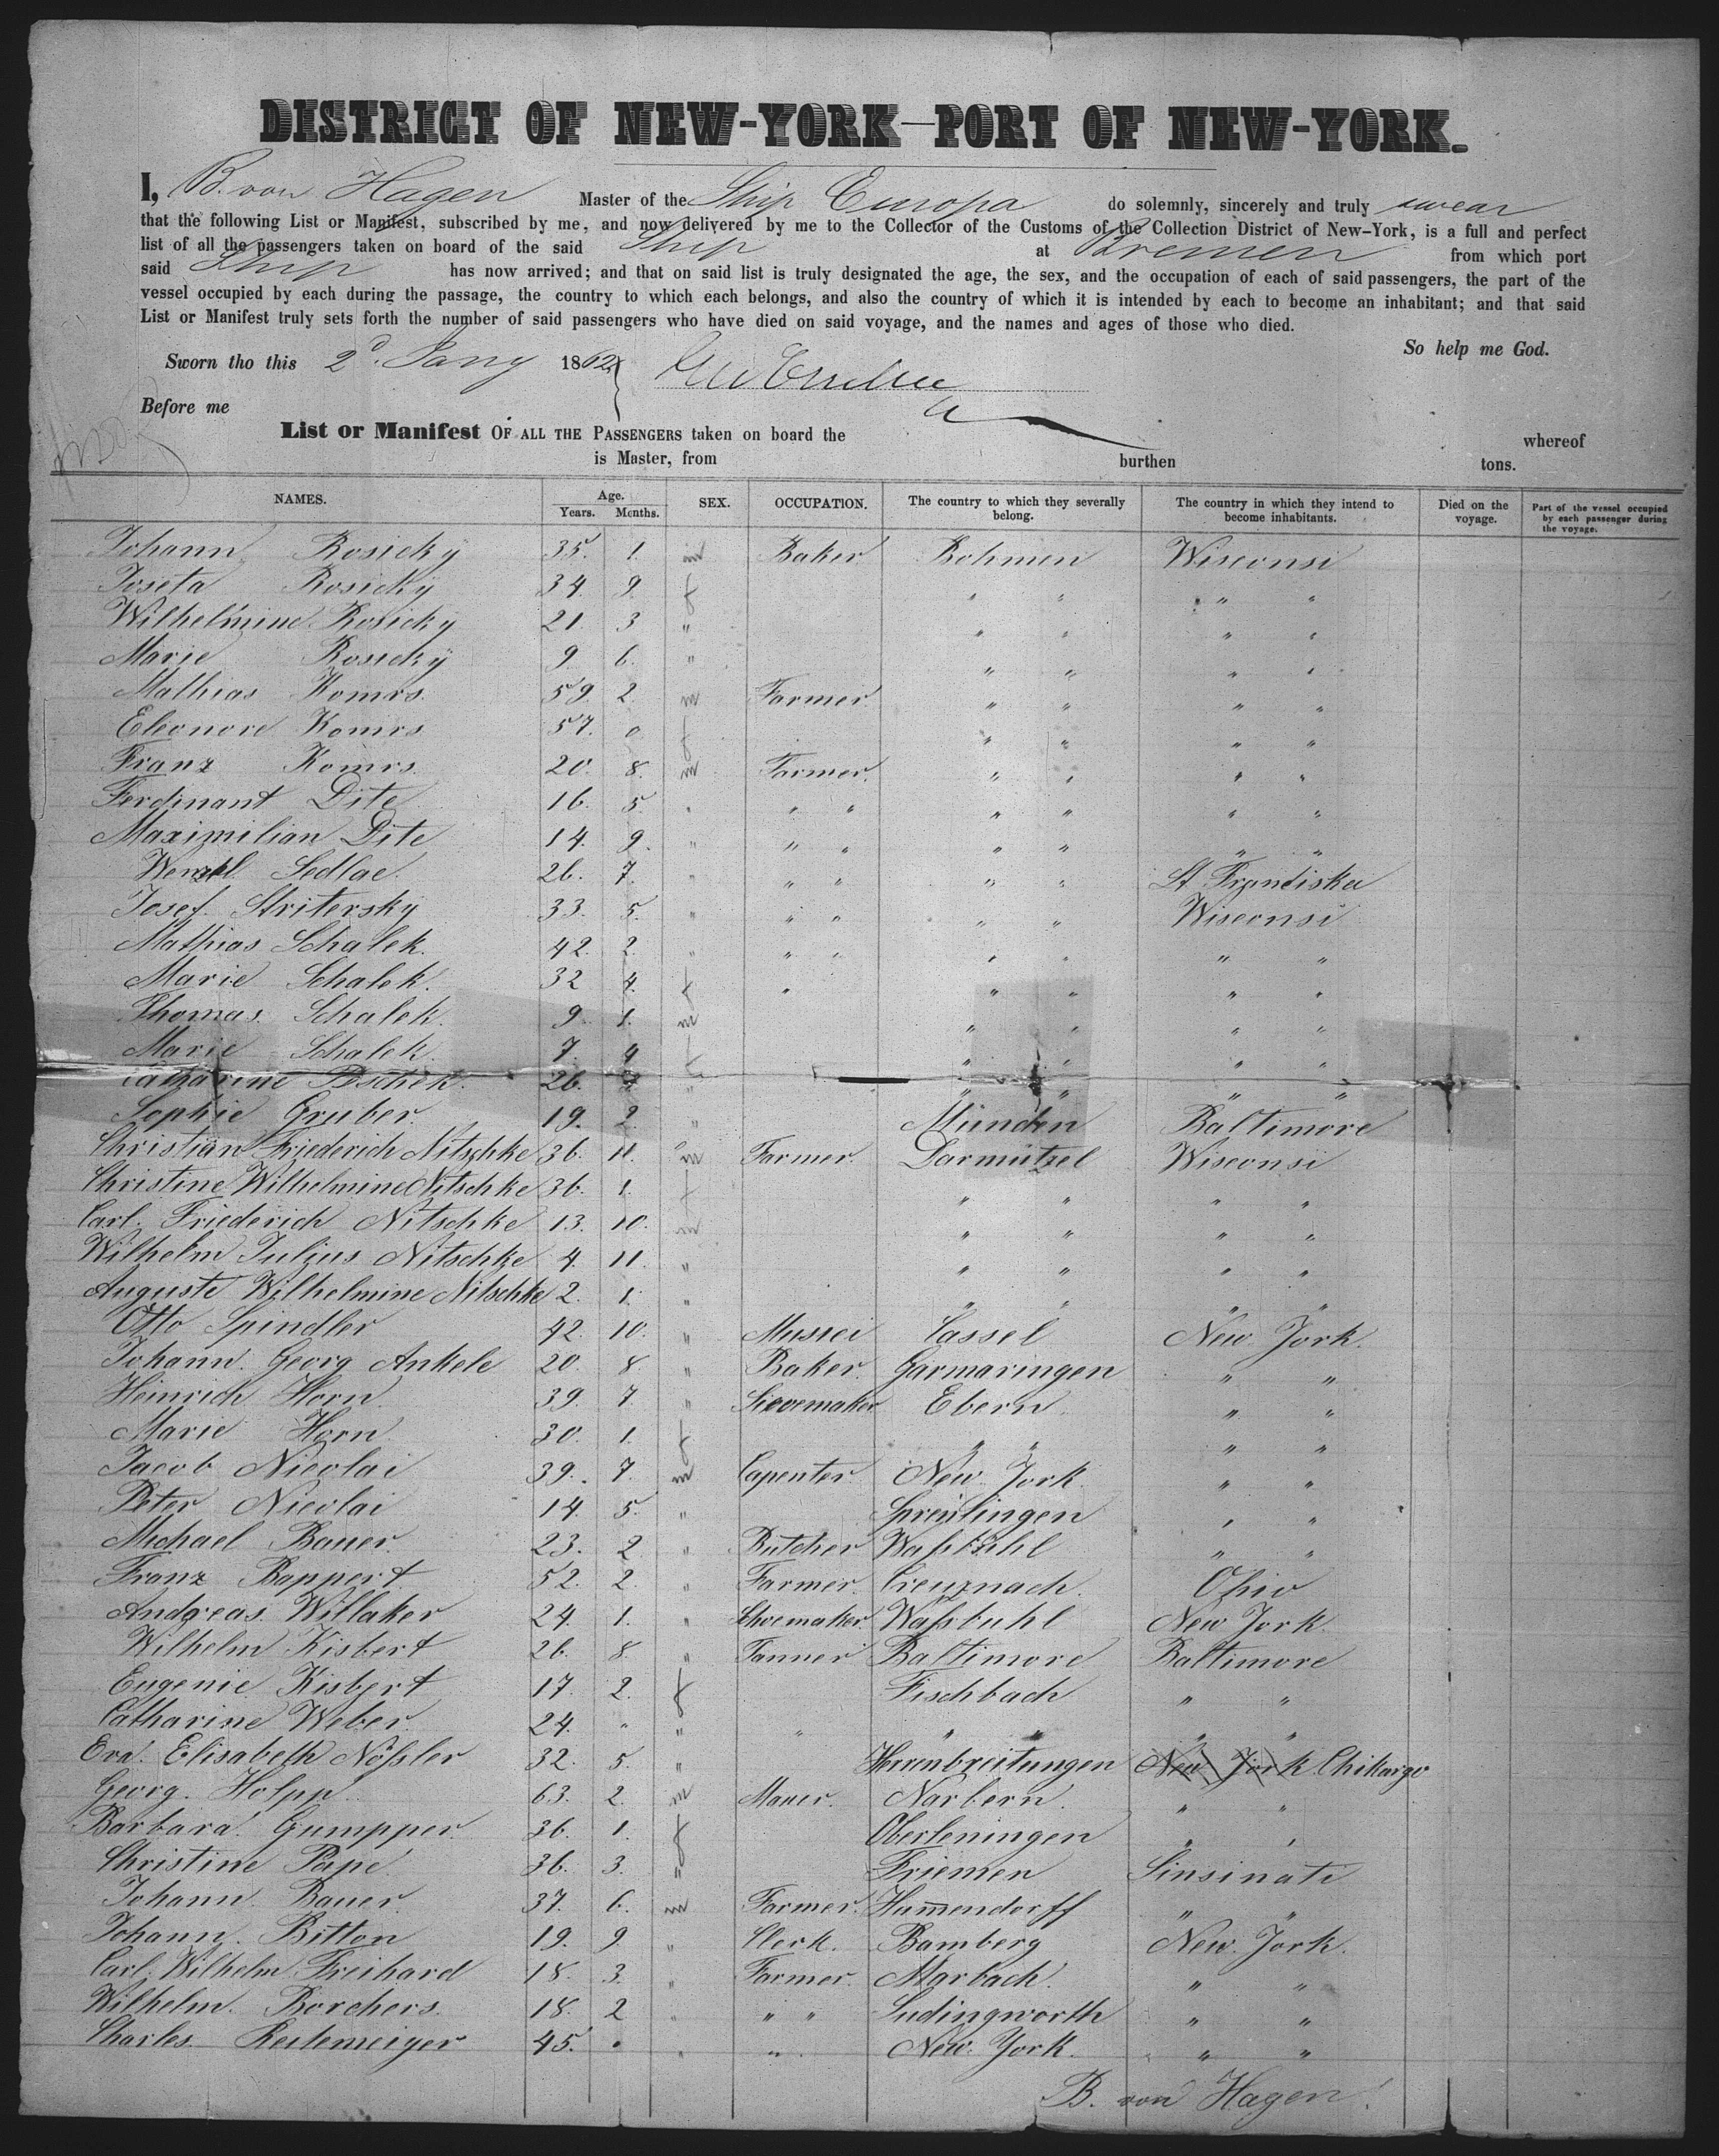 DISTRICT OF NEW-YORK—PORT OF NEW-YORK.
I, B. von Hagen Master of the Ship Europa do solemnly, sincerely and truly swear
that the following List or Manifest, subscribed by me, and now delivered by me to the Collector of the Customs of the Collection District of New-York, is a full and perfect
list of all the passengers taken on board of the said Ship at Bremen from which port
said Ship has now arrived; and that on said list is truly designated the age, the sex, and the occupation of each of said passengers, the part of the
vessel occupied by each during the passage, the country to which each belongs, and also the country of which it is intended by each to become an inhabitant; and that said
List or Manifest truly sets forth the number of said passengers who have died on said voyage, and the names and ages of those who died.
So help me God.
Sworn tho this 2d. Jany 1862
Before me
List or Manifest OF ALL THE PASSENGERS taken on board the whereof
is Master, from burthen tons.
NAMES. Age. Years. Months. SEX. OCCUPATION. The country to which they severally belong. The country in which they intend to become inhabitants. Died on the voyage. Part of the vessel occupied by each passenger during the voyage.
Johann Rosicky 35. 1. m Baker Bohmen Wisconsi
Joseta Rosicky 34. 9. f " " " "
Wilhelmine Rosicky 21. 3 " " " " "
Marie Rosicky 9 6. " " " " "
Mathias Komrs. 59 2. m Farmer. " " " "
Eleonore Komrs 57. 0 f " " " "
Franz Komrs. 20. 8. m Farmer. " " " "
Ferdinant Dite 16. 5. " " " " " " "
Maximilian Dite 14. 9. " " " " " " "
Wenzel Sedlac. 26. 7. " " " " " St Franciskei
Josef. Stritersky 33. 5. " " " " " Wisconsi
Mathias Schalek. 42. 2. " " " " " " "
Marie Schalek. 32 4. f " " " " "
Thomas. Schalek. 9. 1. m " " " "
Marie Schalek. 7. 4 f " " " "
Catharine Peschek. 26. " " " " "
Sophie Gruber. 19. 2. " Münden Baltimore
Christian Friederich Nitschke 36. 11. m Farmer. Darmützel Wisconsi
Christine Wilhelmine Nitschke 36. 1. f " " " "
Carl. Friederich Nitschke 13. 10. m " " " "
Wilhelm Julius Nitschke 4. 11. " " " " "
Auguste Wilhelmine Nitschke 2. 1. " " " " "
Otto Spindler 42. 10. " Musici Cassel New York.
Johann. Georg Ankele 20. 8. " Baker. Garmaringen " "
Heinrich Horn. 39. 7. " Sievemaker Ebern. " "
Marie Horn 30. 1. f " " " "
Jacob Nicolai 39. 7. m Capenter. New York. " "
Peter Nicolai 14. 5. " Sprenlingen " "
Michael Bauer. 23. 2 " Butcher Waßbuhl " "
Franz Bappert. 52. 2. " Farmer. Creuznach. Ohio
Andreas. Willaker 24. 1. " Shoemaker. Waßbuhl New York.
Wilhelm Kisbert 26. 8. " Tanner Baltimore Baltimore
Eugenie Kisbert 17. 2. f Fischbach " "
Catharine Weber. 24. " " " " " " "
Eva. Elisabeth Nößler 32. 5. " Herrenbreitungen New York Chikargo
Georg. Holpp. 63. 2. m Mauer. Narbern. " "
Barbara. Gumpper. 36. 1. f Oberleningen " "
Christine Pape. 36. 3. " Friemen Sinsinati
Johann. Bauer. 37. 6. m Farmer. Hammendorff " "
Johann. Bitton 19. 9. " Clerk. Bamberg New York.
Carl. Wilhelm Freihard 18. 3. " Farmer. Marbach. " "
Wilhelm. Borchers. 18. 2 " " " Ludingworth " "
Charles. Restemeiger 45. " " " New York. " "
B. von Hagen.